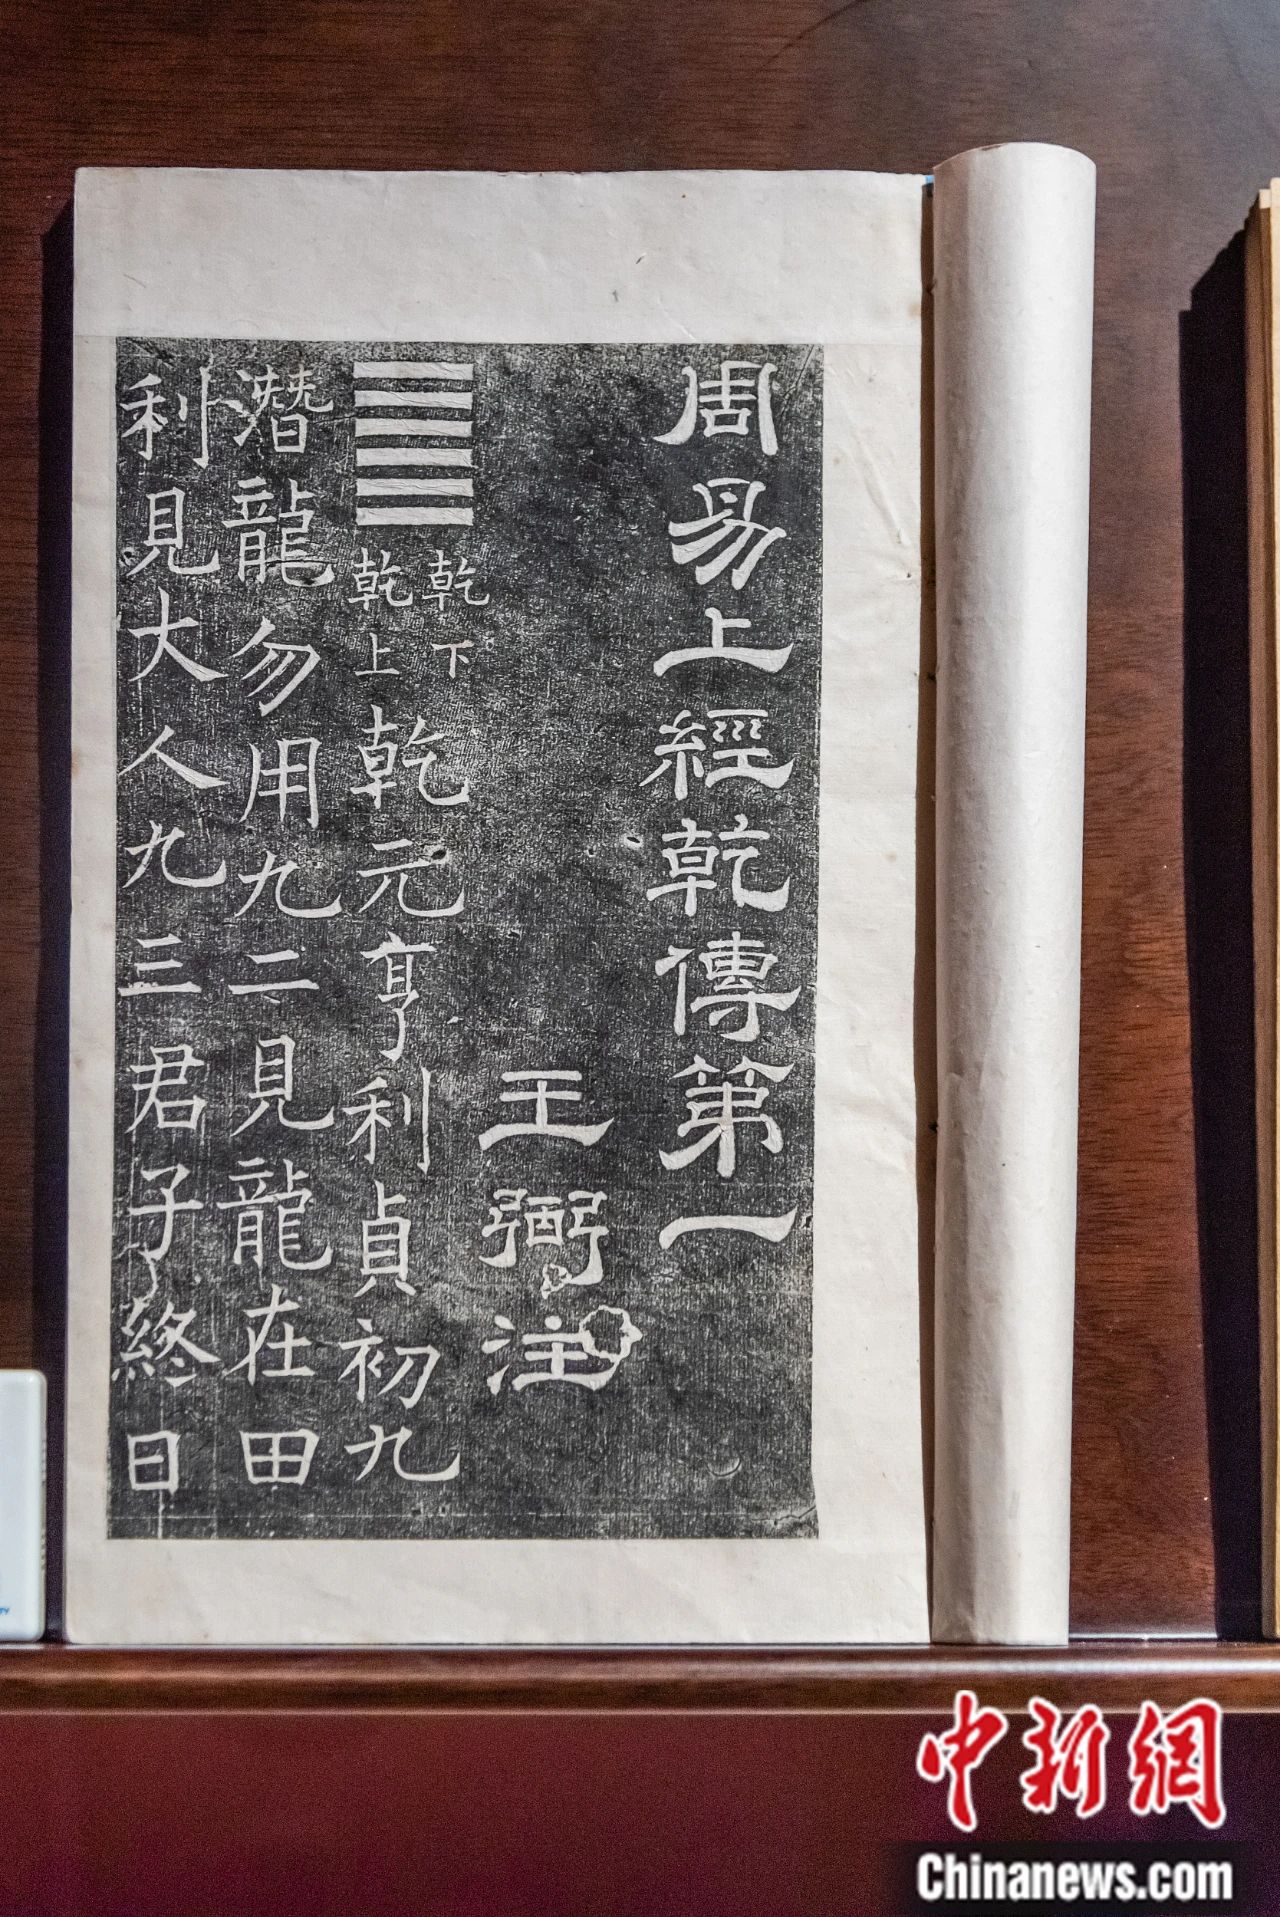 周易上經乾傳第一
王弼注
乾下
乾上
乾元亨利貞初九
潛龍勿用九二見龍在田
利見大人九三君子終日
中新網
Chinanews.com